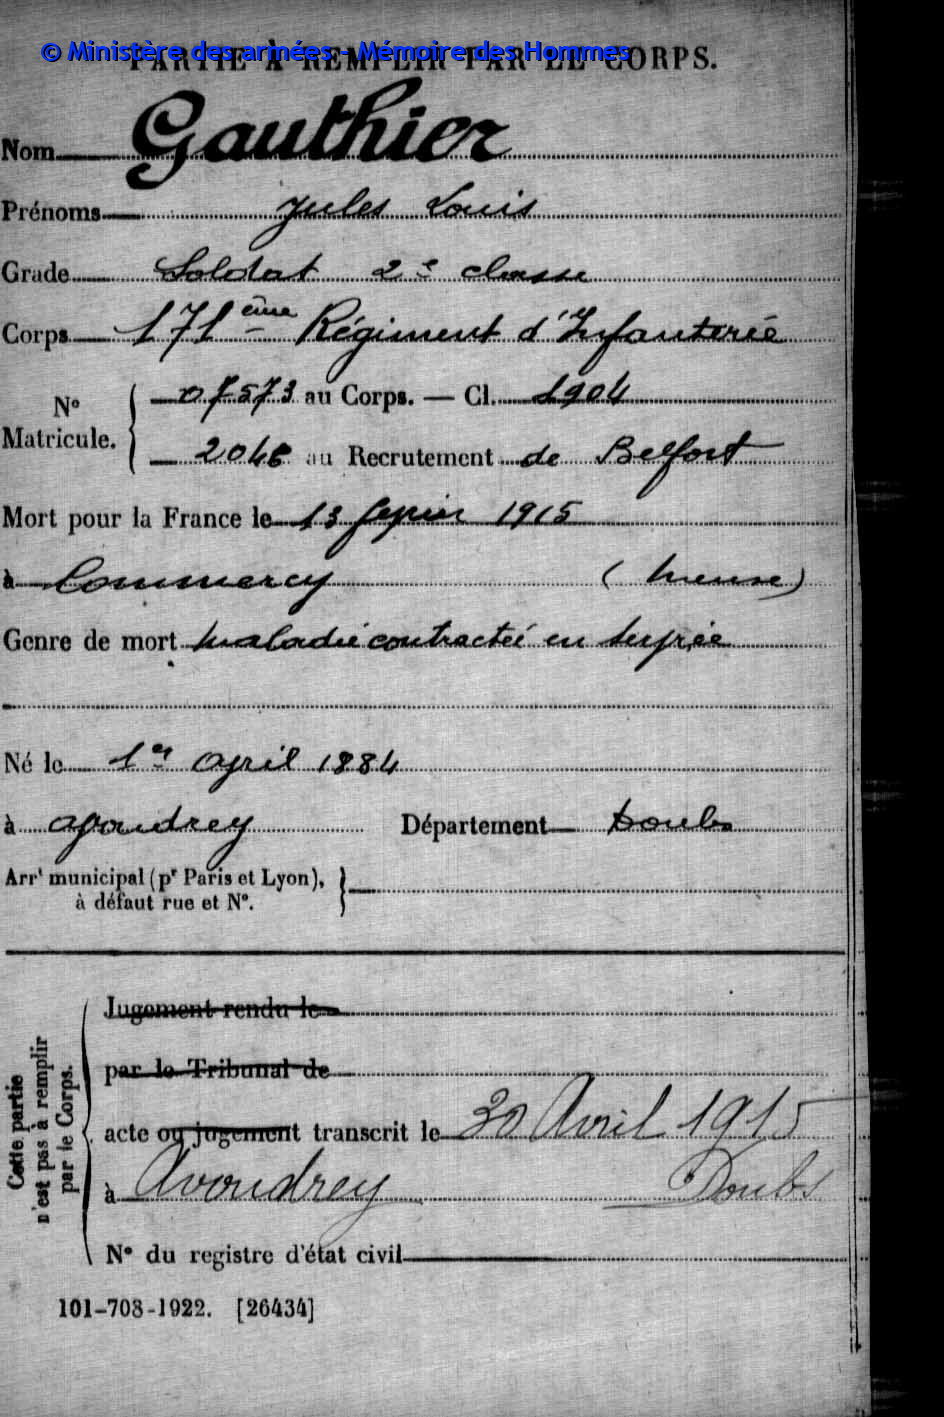 © Ministère des armées - Mémoire des Hommes
PARTIE À REMPLIR PAR LE CORPS.
Nom Gauthier
Prénoms Jules Louis
Grade Soldat 2e classe
Corps 171ème Régiment d'Infanterie
N° Matricule. { 07573 au Corps. — Cl. 1904
2046 au Recrutement de Belfort
Mort pour la France le 13 février 1915
à Commercy (Meuse)
Genre de mort maladie contractée en service
Né le 1er avril 1884
à avoudrey Département Doubs
Arrt municipal (pr Paris et Lyon),
à défaut rue et N°.
Cette partie
n'est pas à remplir
par le Corps.
Jugement rendu le
par le Tribunal de
acte ou jugement transcrit le 30 Avril 1915
à Avoudrey Doubs
N° du registre d'état civil
101-708-1922. [26434]